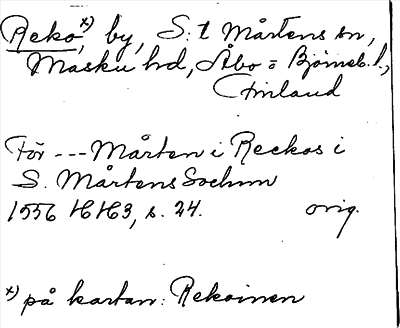 Reko, x) by, S:t Mårtens sn,
Masku hd, Åbo = Björneb. l.,
Finland
För --- Mårten i Reckos i
S. Mårtens Sochnn
1556 HH3, s. 24. orig.
x) på kartan: Rekoinen